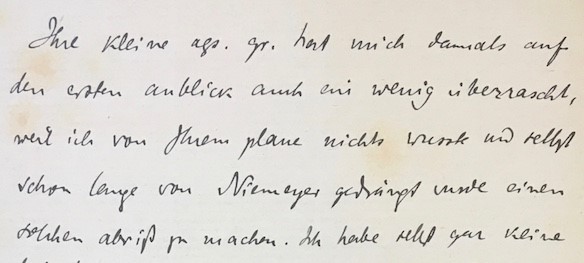 Ihre kleine ags. gr. hat mich damals auf
den ersten anblick auch ein wenig überrascht,
weil ich von Ihrem plane nichts wusste und selbst
schon lange von Niemeyer gedrängt wurde einen
solchen abriß zu machen. Ich habe selbst gar keine